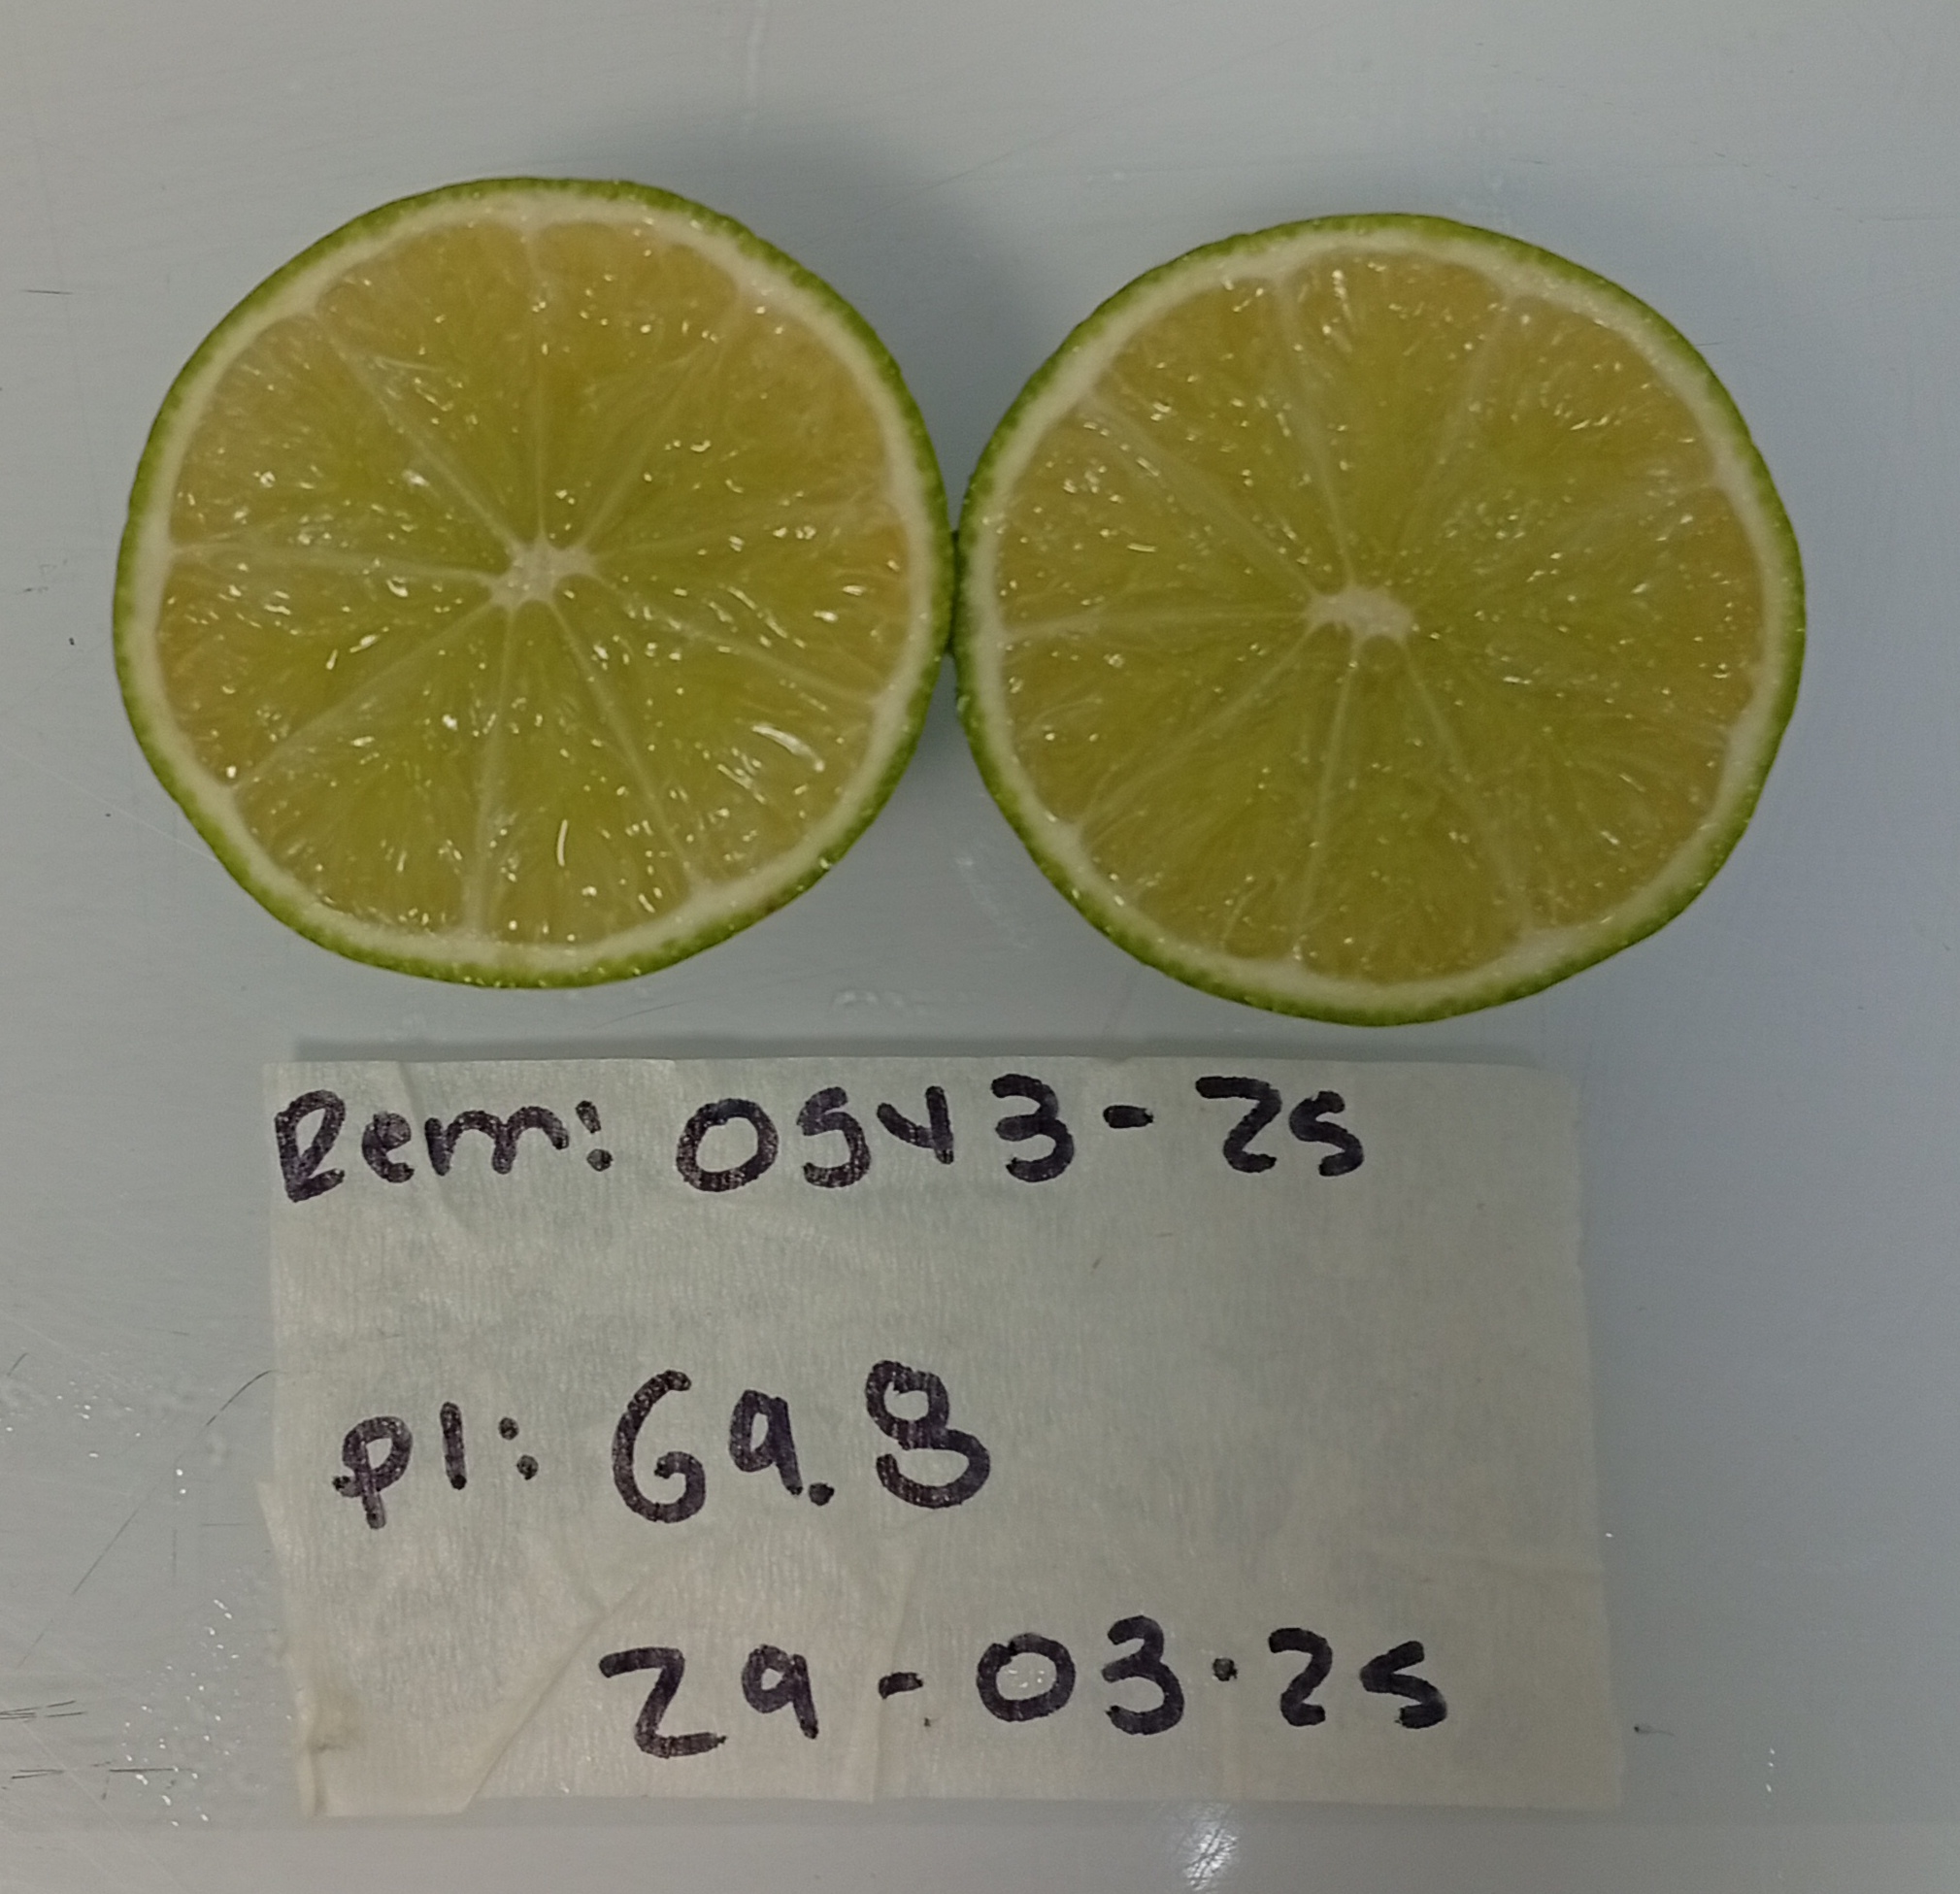 Rem: 0543-25
pl: 69.8
29-03-25